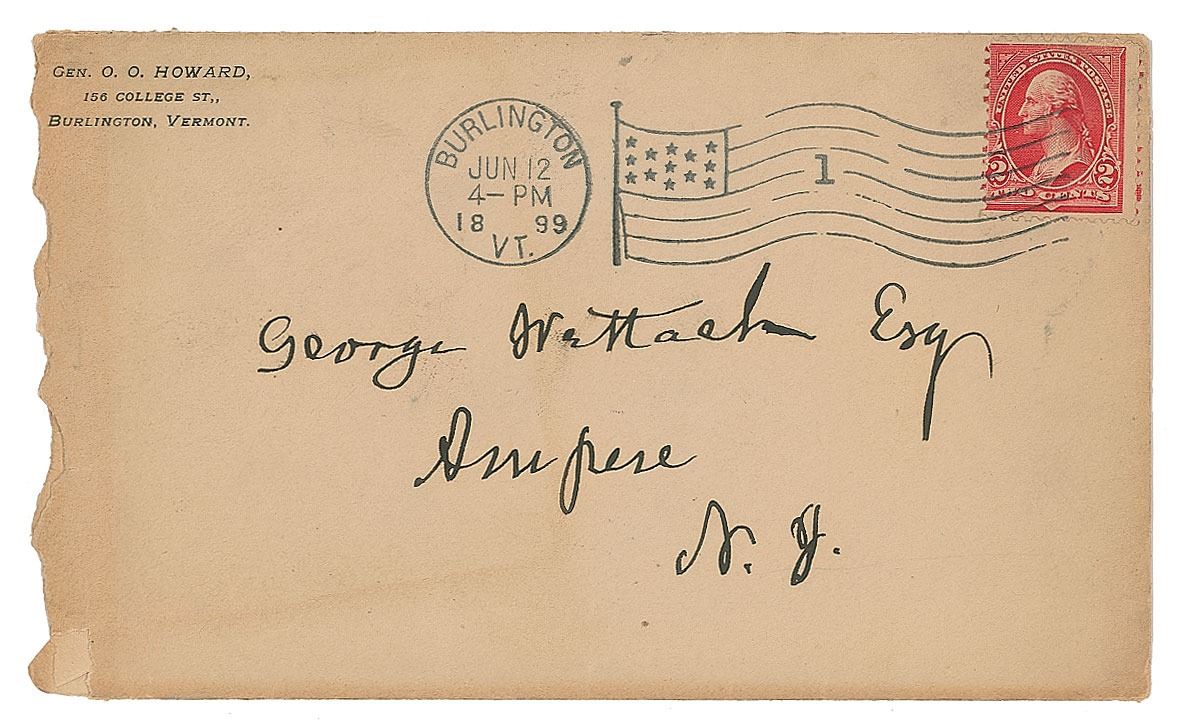 GEN. O. O. HOWARD,
156 COLLEGE ST,,
BURLINGTON, VERMONT.
BURLINGTON
JUN 12
4-PM
18 99
VT.
1
UNITED STATES POSTAGE
2 2
TWO CENTS
George Esq
Ampere
N. J.